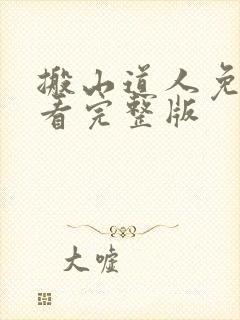 搬山道人免
看完整版
大嘘